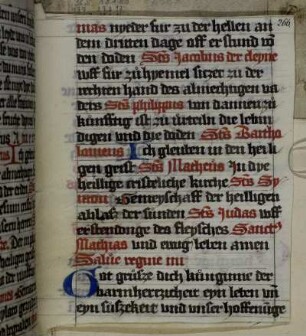 266
mas nyeder fur zu der hellen an
dem dritten dage off er stund vō
den doden Sct̄s Jacobus der cleyne
vff fur zu hyemel sitzet zu der
rechten hand des almechtigen va
ders Sct̄s philippus von dannen zu
kunfftig ist zu vrteiln die lebin
digen vnd die doden Sct̄s Bartho
lomeus Ich gleuben in den heili
gen geist Sct̄s Matheus In dye
heilige cristeliche kirche Sct̄s Sy
mon Gemeyschaff der heiligen
ablaß der sunden Sct̄s Judas vff
erstendunge des fleysches Sanct⁹
Mathias vnd ewig leben amen
Salue regine mi
Got grusze dich kunginne der
barmhertzicheit eyn leben vn̄
eyn suszekeit vnd vnser hoffenūge